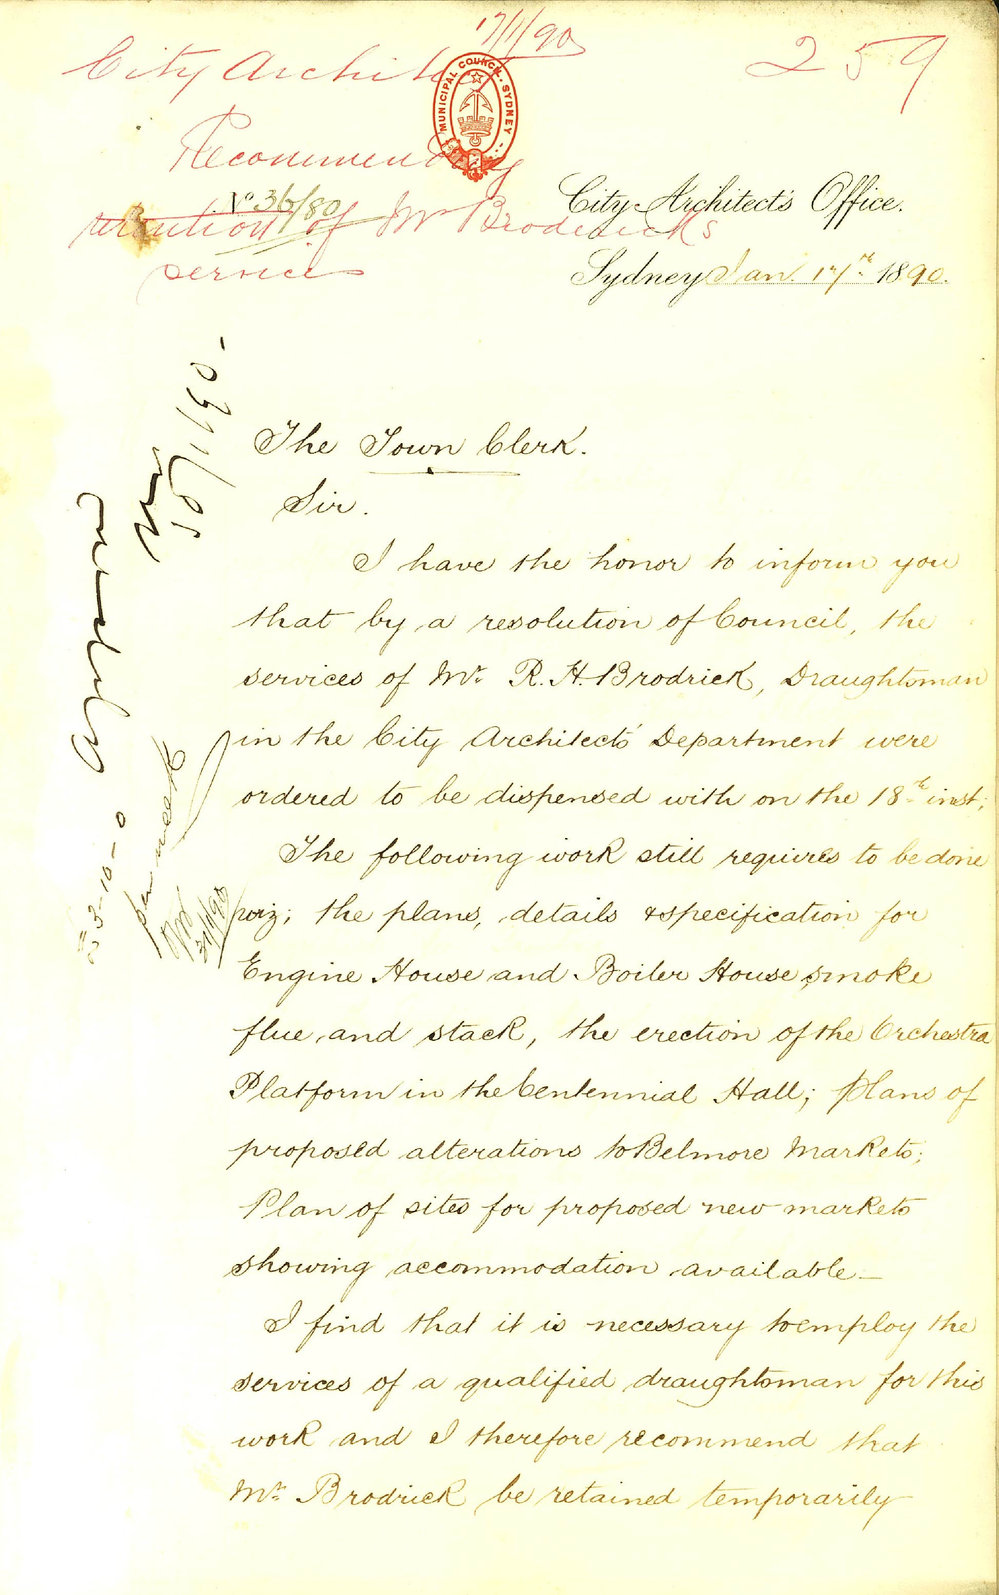 17/1/90
City Architect
259
MUNICIPAL COUNCIL. SYDNEY
Recommending
No 36/80
retention of Mr Brodrick's
service
City Architect's Office.
Sydney Jan. 17th 1890.
The Town Clerk.
Sir.
I have the honor to inform you
that by a resolution of Council, the
services of Mr. R. H. Brodrick, Draughtsman
in the City Architects' Department were
ordered to be dispensed with on the 18th inst;
The following work still requires to be done
viz; the plans, details & specification for
Engine House and Boiler House, smoke
flue, and stack, the erection of the Orchestra
Platform in the Centennial Hall; Plans of
proposed alterations to Belmore Markets;
Plan of sites for proposed new markets
showing accommodation available —
I find that it is necessary to employ the
services of a qualified draughtsman for this
work and I therefore recommend that
Mr. Brodrick be retained temporarily
£3-10-0
per week